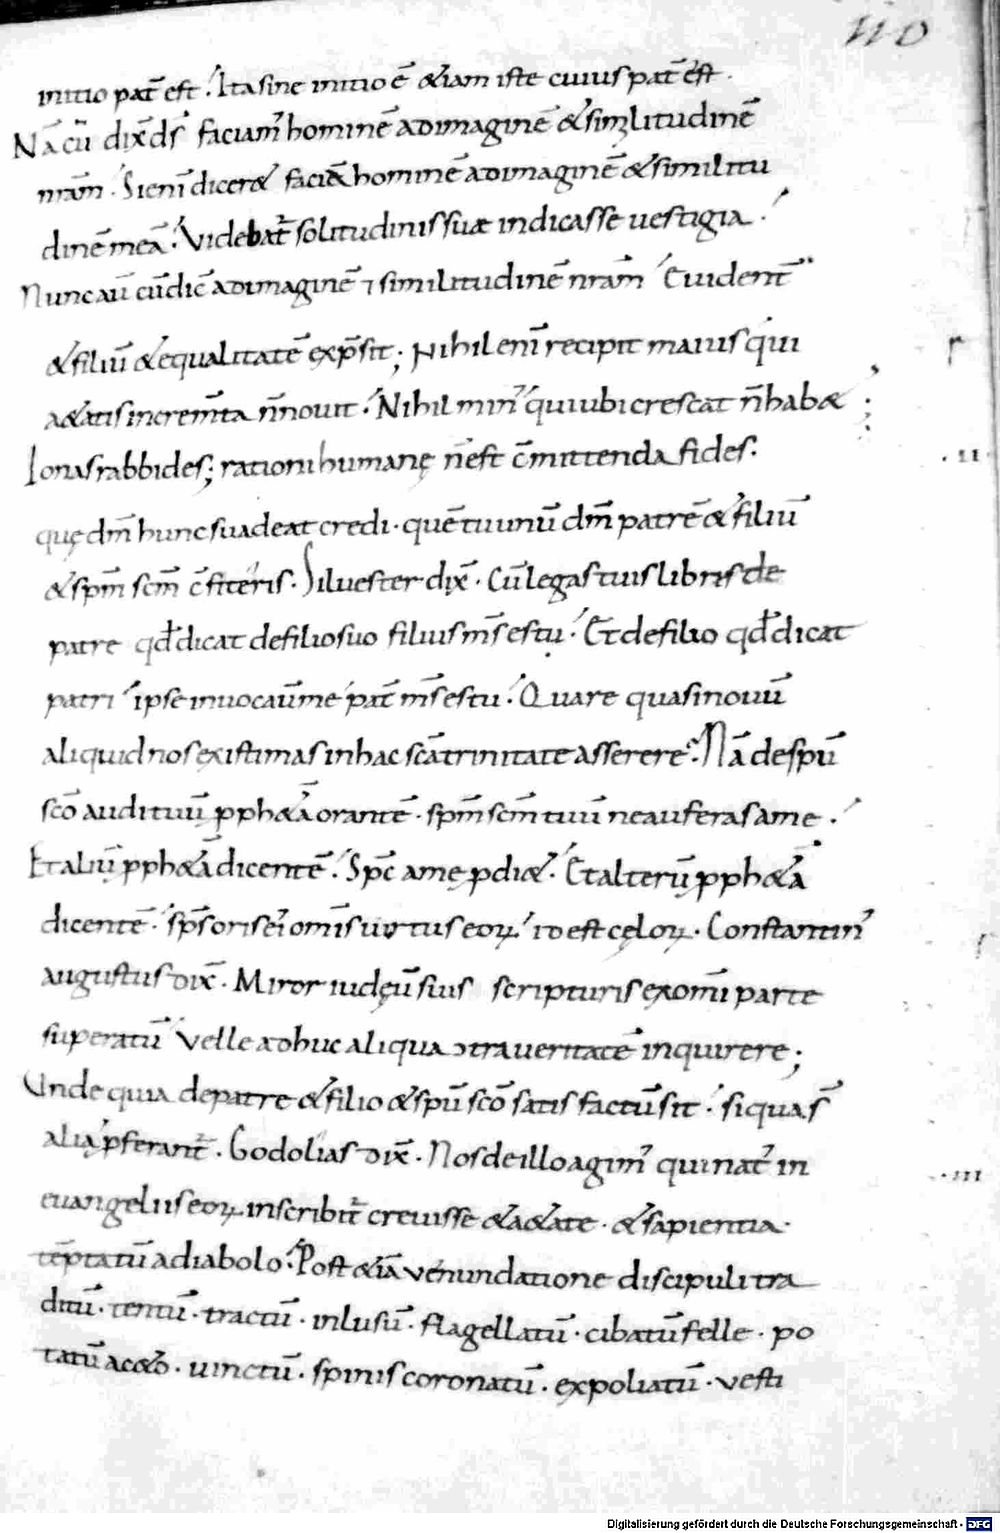 110
initio pat̄ est. Ita sine initio ē &iam iste cuius pat̄ ēst.
Nā cū dix̄ ds̄ faciam' hominē ad imaginē & similitudinē
nr̄am. Si enī dicer& faciā hominē ad imaginē & similitu
dinē meā. Videbat̄ solitudinis suæ indicasse uestigia.
Nunc aū cū dic̄ ad imaginē ⁊ similitudinē nr̄am Euident̄
& filiū & equalitatē exp̄sit; Nihil enī recipit maius qui
a&atis increm̄ta n̄ nouit. Nihil min' qui ubi crescat n̄ hab&
Ionas rabbi dēs; rationi humanę n̄ est c̄mittenda fides.
.II.
quę dm̄ hunc suadeat credi. quē tu unū dm̄ patrē & filiū
& spm̄ scm̄ c̄fiteris. Siluester dix̄. Cū legas tuis libris de
patre qđ dicat de filio suo filius ms̄ es tu. Et de filio qđ dicat
patri ipse inuocau̅ me pat̄ ms̄ es tu. Quare quasi nouū
aliquid nos existimas in hac scā trinitate asserere. Nā de spū
scō audi tuū pph&ā orantē. spm̄ scm̄ tuū ne auferas a me.
Et aliū pph&ā dicentē. Spc̄ a me pdi&. Et alterū pph&ā
dicentē. sps̄ oris ei' omīs uirtus eoꝝ id est cęloꝝ. Constantin'
augustus dix̄. Miror iudęū suis scripturis ex omī parte
superatū velle adhuc aliqua ɔtra ueritatē inquirere;
Unde quia de patre & filio & spū scō satis factū sit. si qua s̄
alia pferant̄. Godolias dix̄. Nos de illo agim' qui nat' in
.III
euangeliis eoꝝ inscribit̄ creuisse & a&ate. & sapientia.
tēptatū a diabolo. Post &iā venundatione discipuli tra
ditū. tentū. tractū. inlusū. flagellatū. cibatū felle. po
tatū ac&o. uinctū. spinis coronatū. expoliatū. vesti
Digitalisierung gefördert durch die Deutsche Forschungsgemeinschaft - DFG